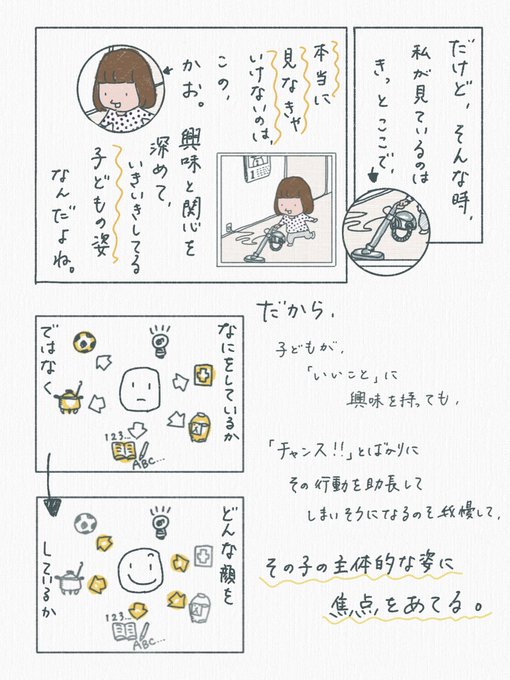 だけど、そんな時、
私が見ているのは
きっとここで、
本当に
見なきゃ
いけないのは、
この、
かお。
興味と関心を
深めて、
いきいきしてる
子どもの姿
なんだよね。
だから、
子どもが、
「いいこと」に
興味を持っても、
「チャンス!!」とばかりに
その行動を助長して
しまいそうになるのを我慢して、
その子の主体的な姿に
焦点をあてる。
なにをしているか
ではなく
123...
ABC...
どんな顔を
しているか
123...
ABC...